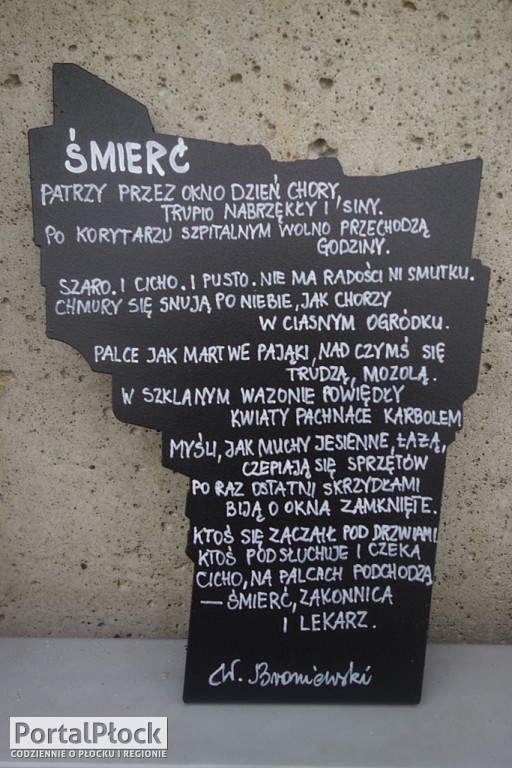 ŚMIERĆ
PATRZY PRZEZ OKNO DZIEŃ CHORY,
TRUPIO NABRZĘKŁY I SINY.
PO KORYTARZU SZPITALNYM WOLNO PRZECHODZĄ
GODZINY.
SZARO. I CICHO. I PUSTO. NIE MA RADOŚCI NI SMUTKU.
CHMURY SIĘ SNUJĄ PO NIEBIE, JAK CHORZY
W CIASNYM OGRÓDKU.
PALCE JAK MARTWE PAJĄKI, NAD CZYMŚ SIĘ
TRUDZĄ, MOZOLĄ.
W SZKLANYM WAZONIE POWIĘDŁY
KWIATY PACHNĄCE KARBOLEM
MYŚLI, JAK MUCHY JESIENNE, ŁAŻĄ,
CZEPIAJĄ SIĘ SPRZĘTÓW
PO RAZ OSTATNI SKRZYDŁAMI
BIJĄ O OKNA ZAMKNIĘTE.
KTOŚ SIĘ ZACZAIŁ POD DRZWIAMI
KTOŚ PODSŁUCHUJE I CZEKA
CICHO, NA PALCACH PODCHODZĄ
— ŚMIERĆ, ZAKONNICA
I LEKARZ.
W. Broniewski
PortalPłock
CODZIENNIE O PŁOCKU I REGIONIE